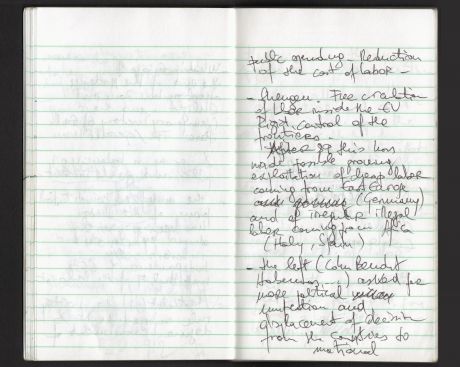 public spending - Reduction
of the cost of labor -
- Free circulation
of labor inside the EU
Rigid control of the
frontiers -
After 89 this has
made possible growing
exploitation of cheap labor
coming from East Europe
(Germany)
and of irregular illegal
labor coming from Africa
(Italy, Spain)
- the left (Cohn Bendit
Habermas...) asked for
more political
unification and
displacement of decision
from the countries to
national